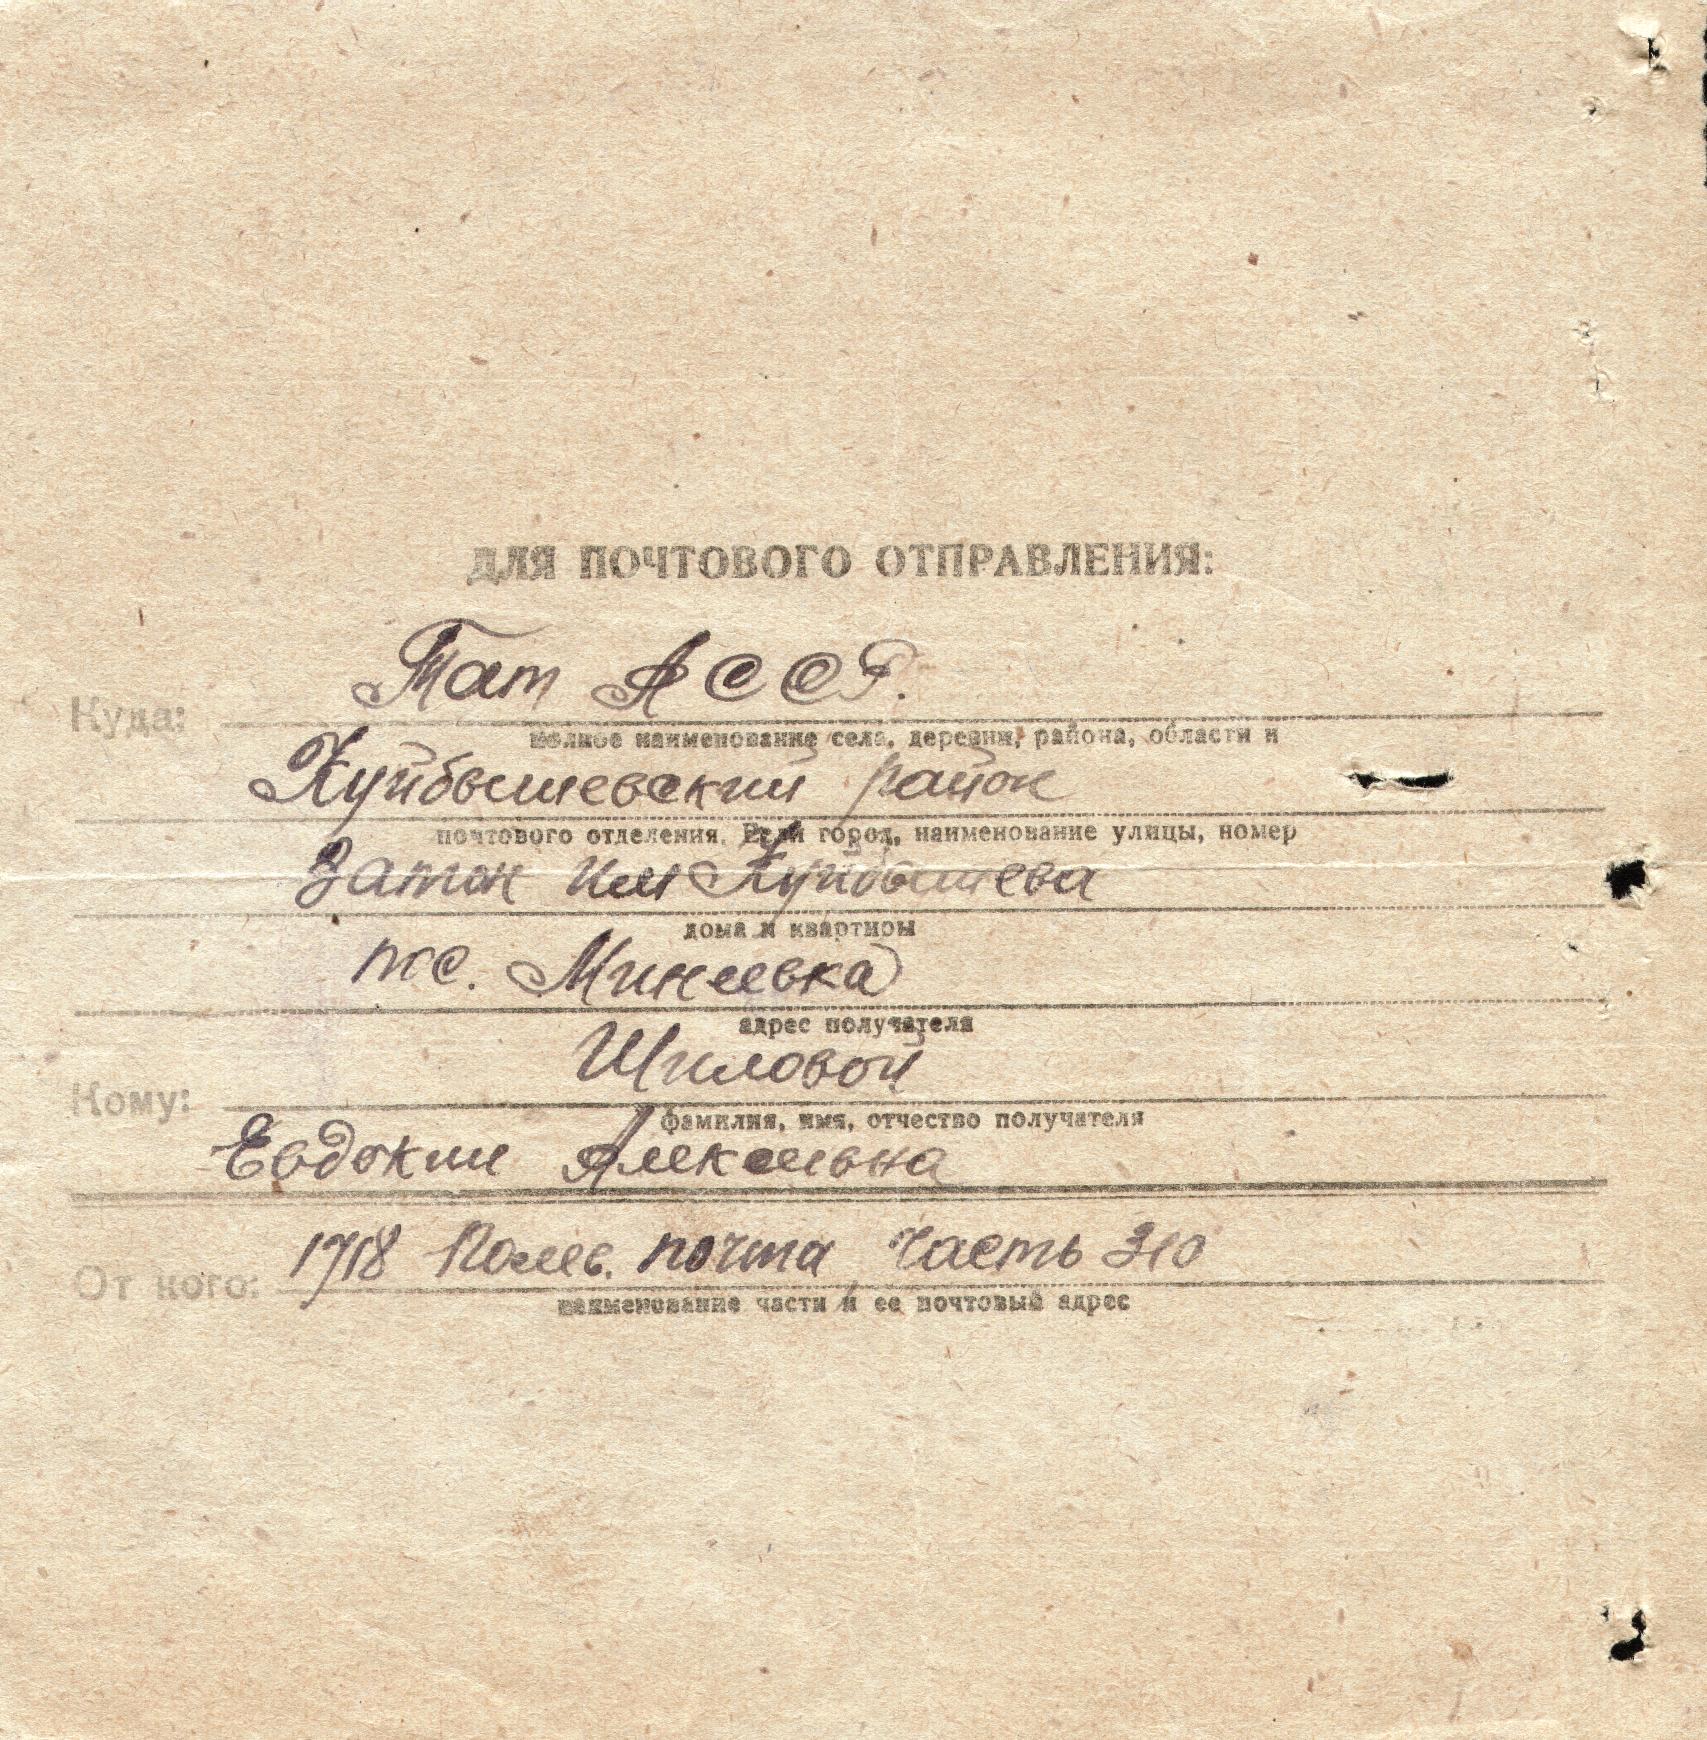 ДЛЯ ПОЧТОВОГО ОТПРАВЛЕНИЯ:
Тат АССР.
Куда:
полное наименование села, деревни, района, области и
Куйбышевский район
почтового отделения. Если город, наименование улицы, номер
Затон им Куйбышева
дома и квартиры
п/с. Минеевка
адрес получателя
Шиловой
Кому:
фамилия, имя, отчество получателя
Евдокии Алексеевна
1718 Полев. почта, часть 310
От кого:
наименование части и ее почтовый адрес